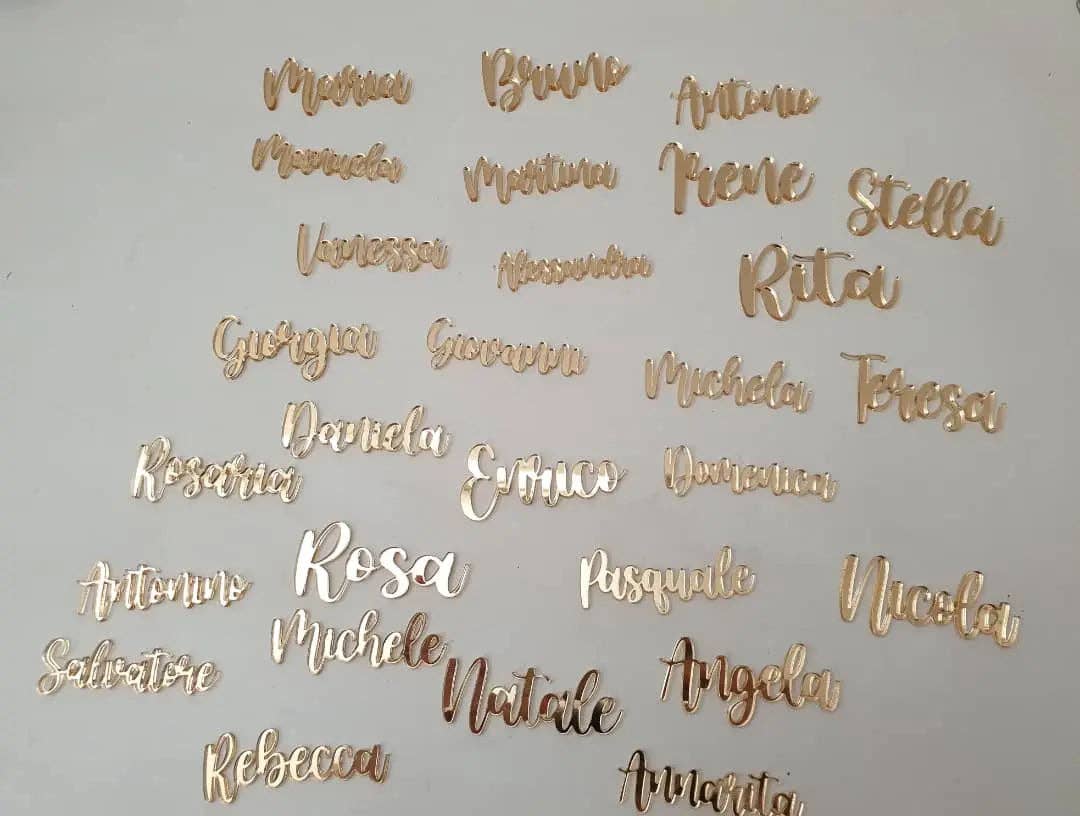 Maria Bruno Antonio
Manuela Martina Irene Stella
Vanessa Alessandra Rita
Giorgia Giovanni Michela Teresa
Daniela
Rosaria Enrico Domenica
Antonino Rosa Pasquale Nicola
Salvatore Michele Natale Angela
Rebecca Annarita